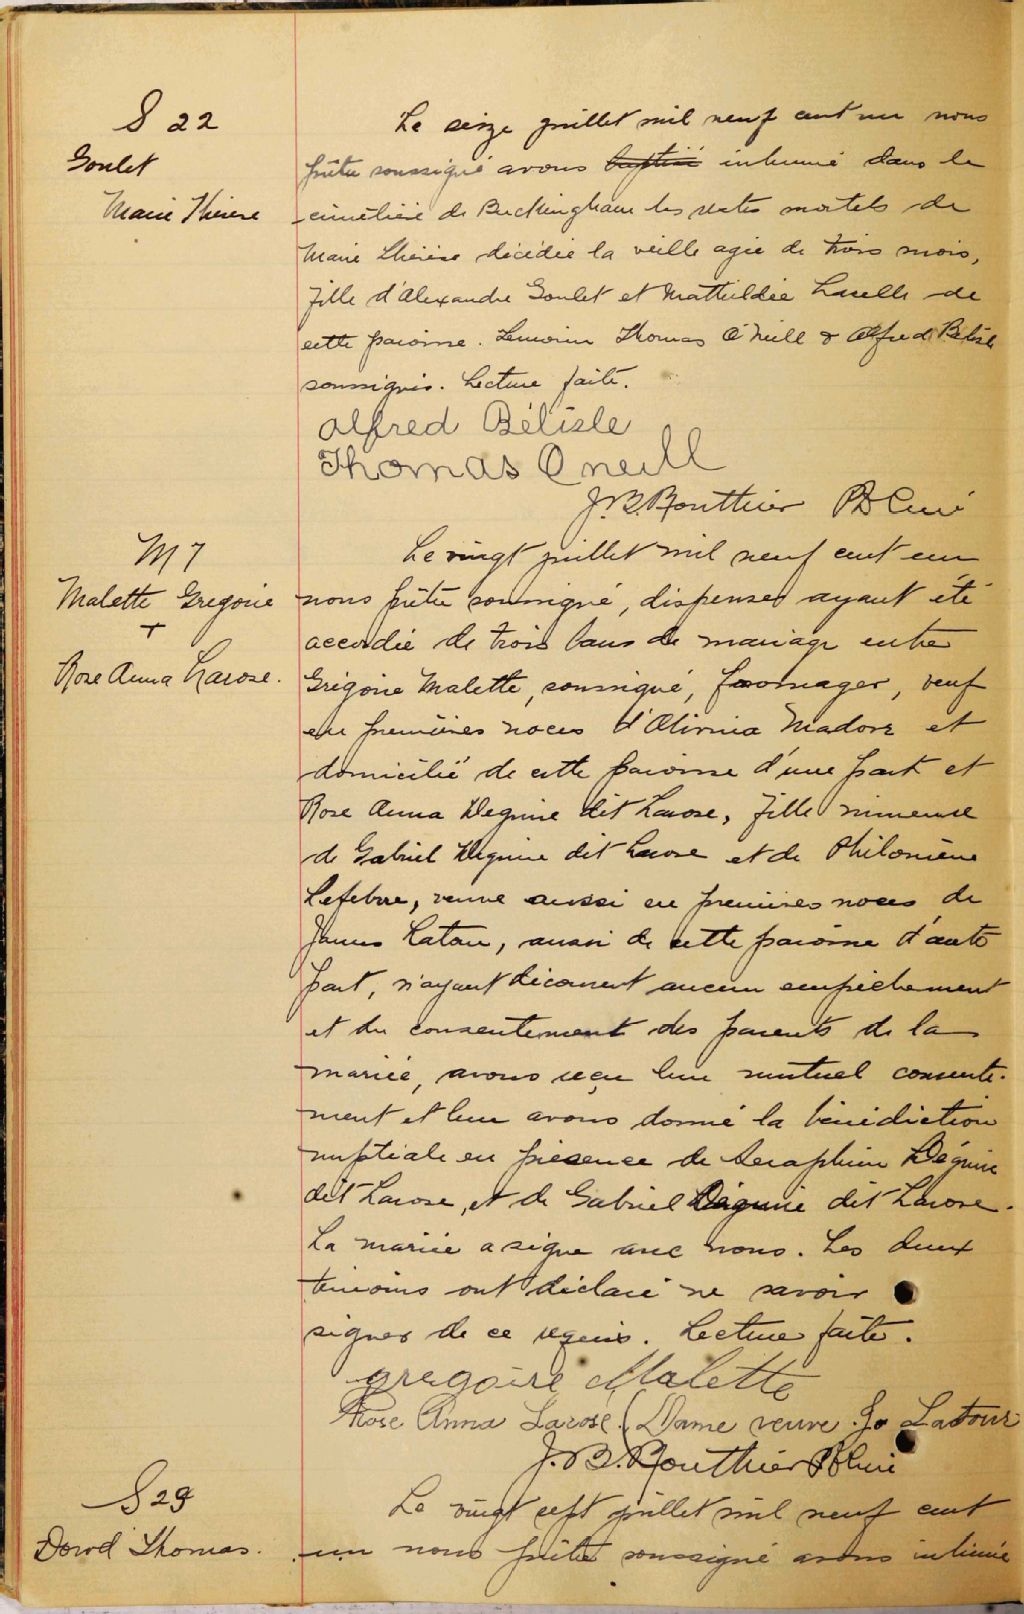 S 22
Goulet
Marie Thérèse
Le seize juillet mil neuf cent un nous
prêtre soussigné avons baptisé inhumé dans le
cimetière de Buckingham les restes mortels de
Marie Thérèse décédée la veille agée de trois mois,
fille d'Alexandre Goulet et Mathildée Lacelle de
cette paroisse. Temoins Thomas O'Neill & Alfred Bélisle
soussignés. Lecture faite.
Alfred Bélisle
Thomas O neill
J.B. Routhier Ptre Curé
M 7
Malette Gregoire
+
Rose Anna Larose.
Le vingt juillet mil neuf cent un
nous prêtre soussigné, dispenses ayant été
accordée de trois bans de mariage entre
Grégoire Malette, soussigné, fromager, veuf
en premières noces d'Olivina Madore et
domicilié de cette paroisse d'une part et
Rose Anna Deguire dit Larose, fille mineure
de Gabriel Deguire dit Larose et de Philomène
Lefebvre, veuve aussi en premières noces de
James Latour, aussi de cette paroisse d'autre
part, n'ayant découvert aucun empêchement
et du consentement des parents de la
mariée, avons reçu leur mutuel consente-
ment et leur avons donné la bénédiction
nuptiale en présence de Seraphin Déguire
dit Larose, et de Gabriel Déguire dit Larose.
La mariée a signé avec nous. Les deux
témoins ont déclaré ne savoir
signer de ce requis. Lecture faite.
gregoire Malette
Rose Anna Larose. (Dame veuve Jo Latour
J.B. Routhier Ptre Curé
S 29
Dowd Thomas.
Le vingt sept juillet mil neuf cent
un nous prêtre soussigné avons inhumé